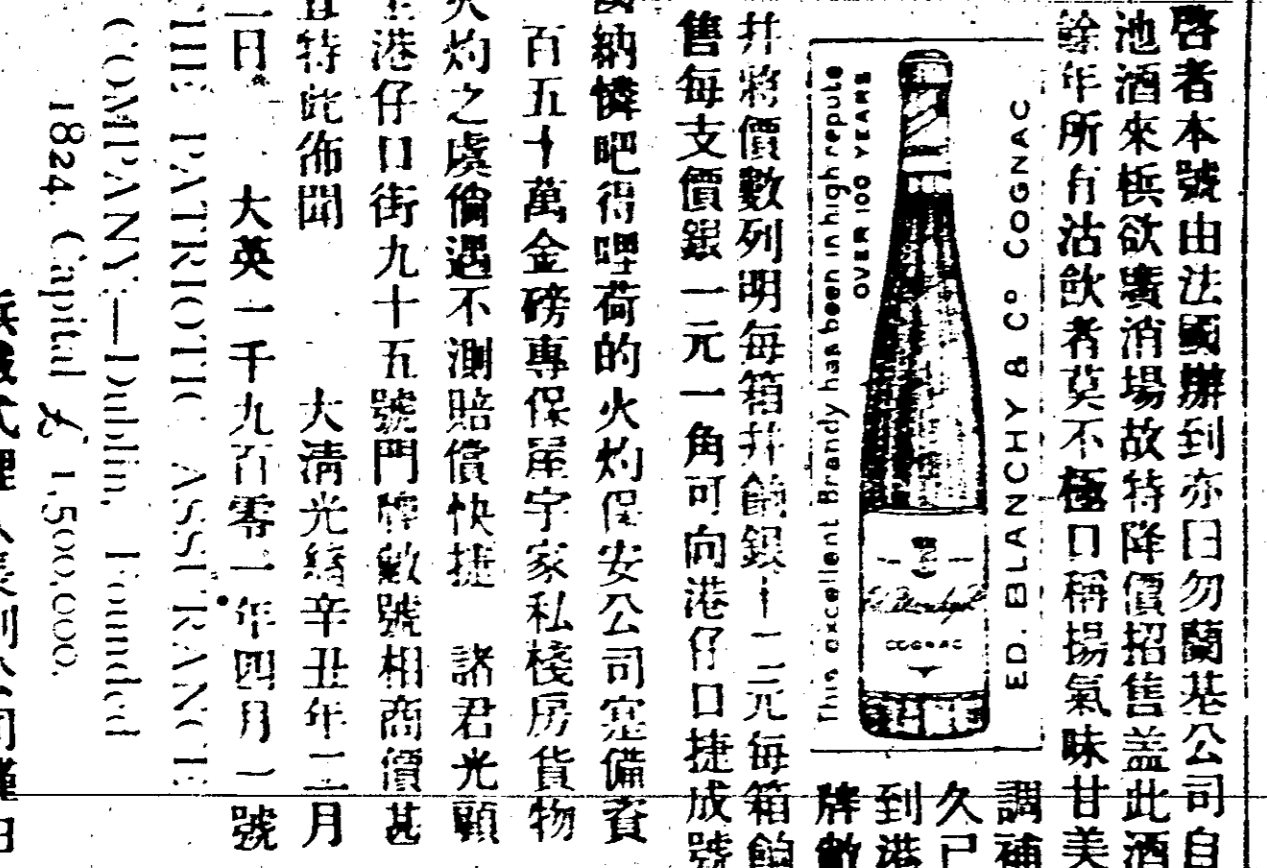 啓者本號由法國辦到亦曰勿蘭基公司自
池酒來梹欲廣消場故特降價招售盖此酒
餘年所有沽飲者莫不極口稱揚氣味甘美
調補
久已
到港
牌數
ED. BLANCHY & Cº COGNAC
COGNAC
OVER 100 YEARS
This excellent Brandy has been in high repute
井將價數列明每箱井餉銀十二元每箱餉
售每支價銀一元一角可向港仔口捷成號
納憐吧得哩荷的火灼保安公司寔備資
百五十萬金磅專保屋宇家私棧房貨物
火灼之虞倘遇不測賠償快捷 諸君光顧
港仔口街九十五號門牌數號相商價甚
特此佈聞 大清光緒辛丑年二月
一日 大英一千九百零一年四月一號
THE PATRIOTIC ASSURANCE
COMPANY:—Dublin, Founded
1824. Capital £ 1,500,000.